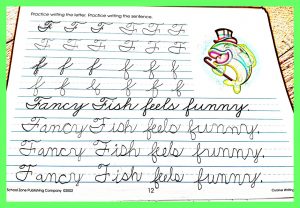 Practice writing the letter. Practice writing the sentence.
F F F F F F
F F F F F F
f f f f f f
f f f f f f
Fancy Fish feels funny.
Fancy Fish feels funny.
Fancy Fish feels funny.
Fancy Fish feels funny.
School Zone Publishing Company ©2003 12 Cursive Writing